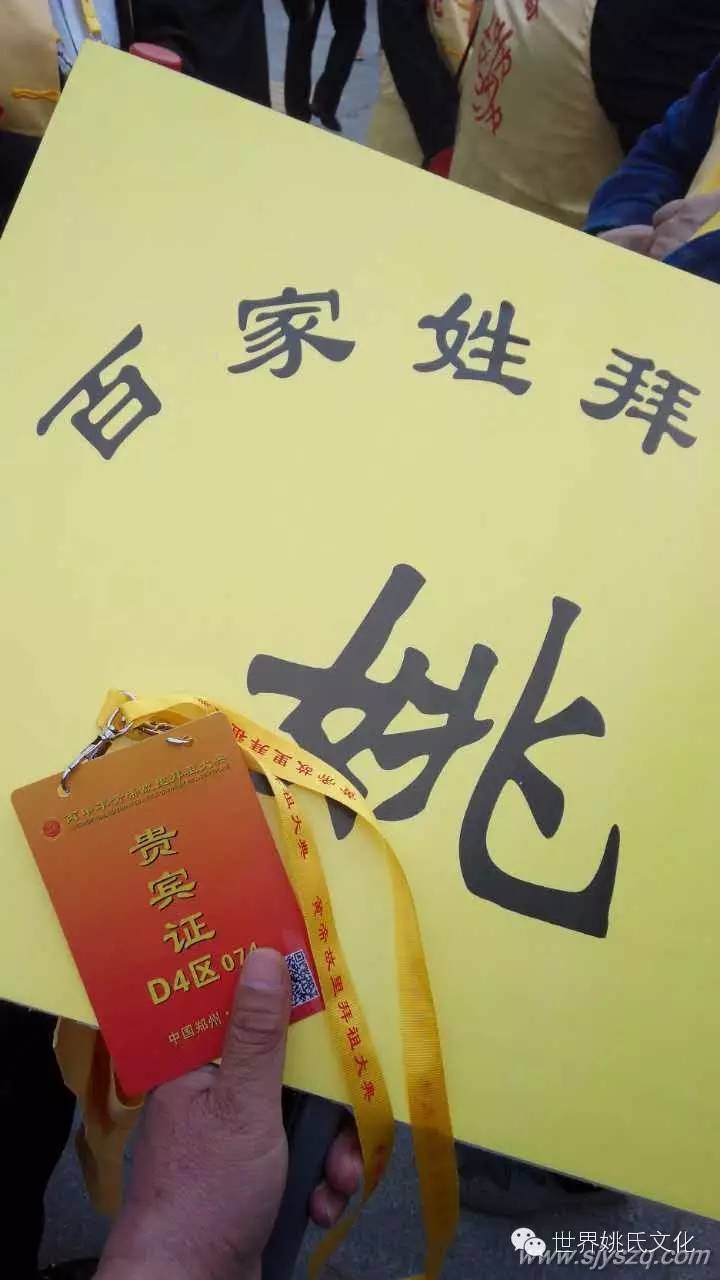 百家姓拜
姚
贵宾证
D4区 074
中国郑州·
黄帝故里拜祖大典
黄帝故里拜祖
祖大典
世界姚氏文化
www.sjyszq.com